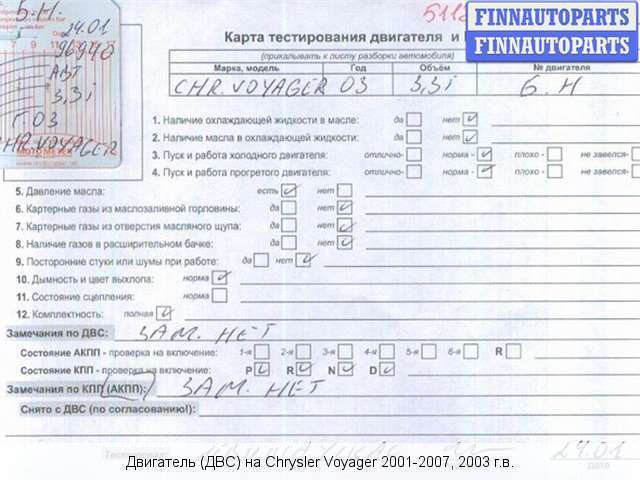 Б.Н.
24.01
96940
АВТ
3,3i
Г. 03
CHR VOYAGER
MOTOMETER
FINNAUTOPARTS
FINNAUTOPARTS
Карта тестирования двигателя и
(прикалывать к листу разборки автомобиля)
Марка, модель Год Объём № двигателя
CHR. VOYAGER 03 3,3i Б.Н
1. Наличие охлаждающей жидкости в масле: да нет
2. Наличие масла в охлаждающей жидкости: да нет
3. Пуск и работа холодного двигателя: отлично- норма - плохо - не завелся-
4. Пуск и работа прогретого двигателя: отлично- норма - плохо - не завелся-
5. Давление масла: есть нет
6. Картерные газы из маслозаливной горловины: да нет
7. Картерные газы из отверстия масляного щупа: да нет
8. Наличие газов в расширительном бачке: да нет
9. Посторонние стуки или шумы при работе: да нет
10. Дымность и цвет выхлопа: норма
11. Состояние сцепления: норма
12. Комплектность: полная
Замечания по ДВС: ЗАМ. НЕТ
Состояние АКПП - проверка на включение: 1-я 2-я 3-я 4-я 5-я 6-я R
Состояние КПП - проверка на включение: P R N D
Замечания по КПП (АКПП): ЗАМ. НЕТ
Снято с ДВС (по согласованию!):
Тестировал: 24.01
Дата
Двигатель (ДВС) на Chrysler Voyager 2001-2007, 2003 г.в.